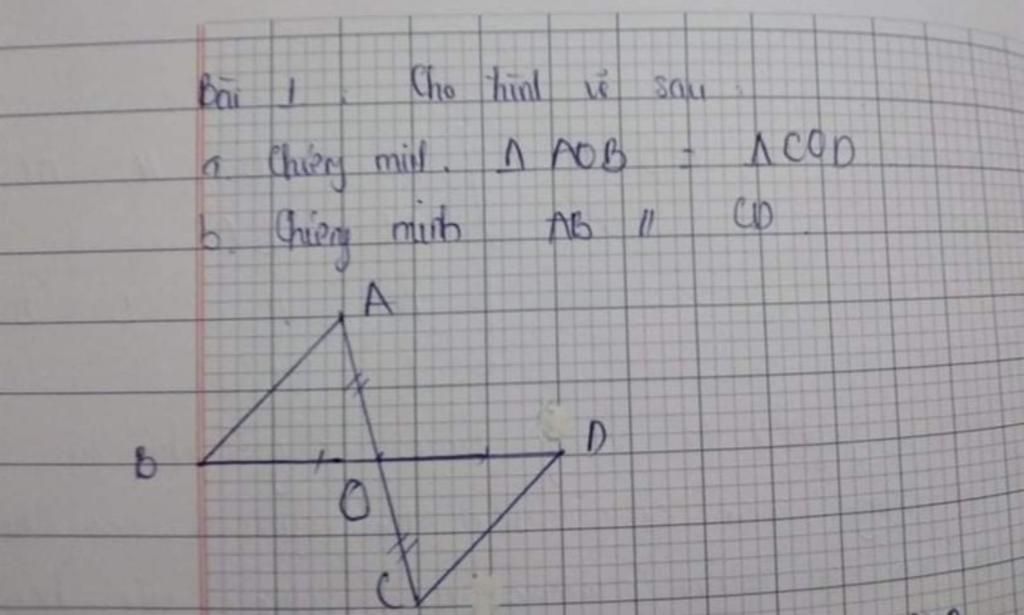 Bài 1. Cho hình vẽ sau.
a. Chứng minh. Δ AOB = Δ COD
b. Chứng minh AB // CD
A
B
D
O
C